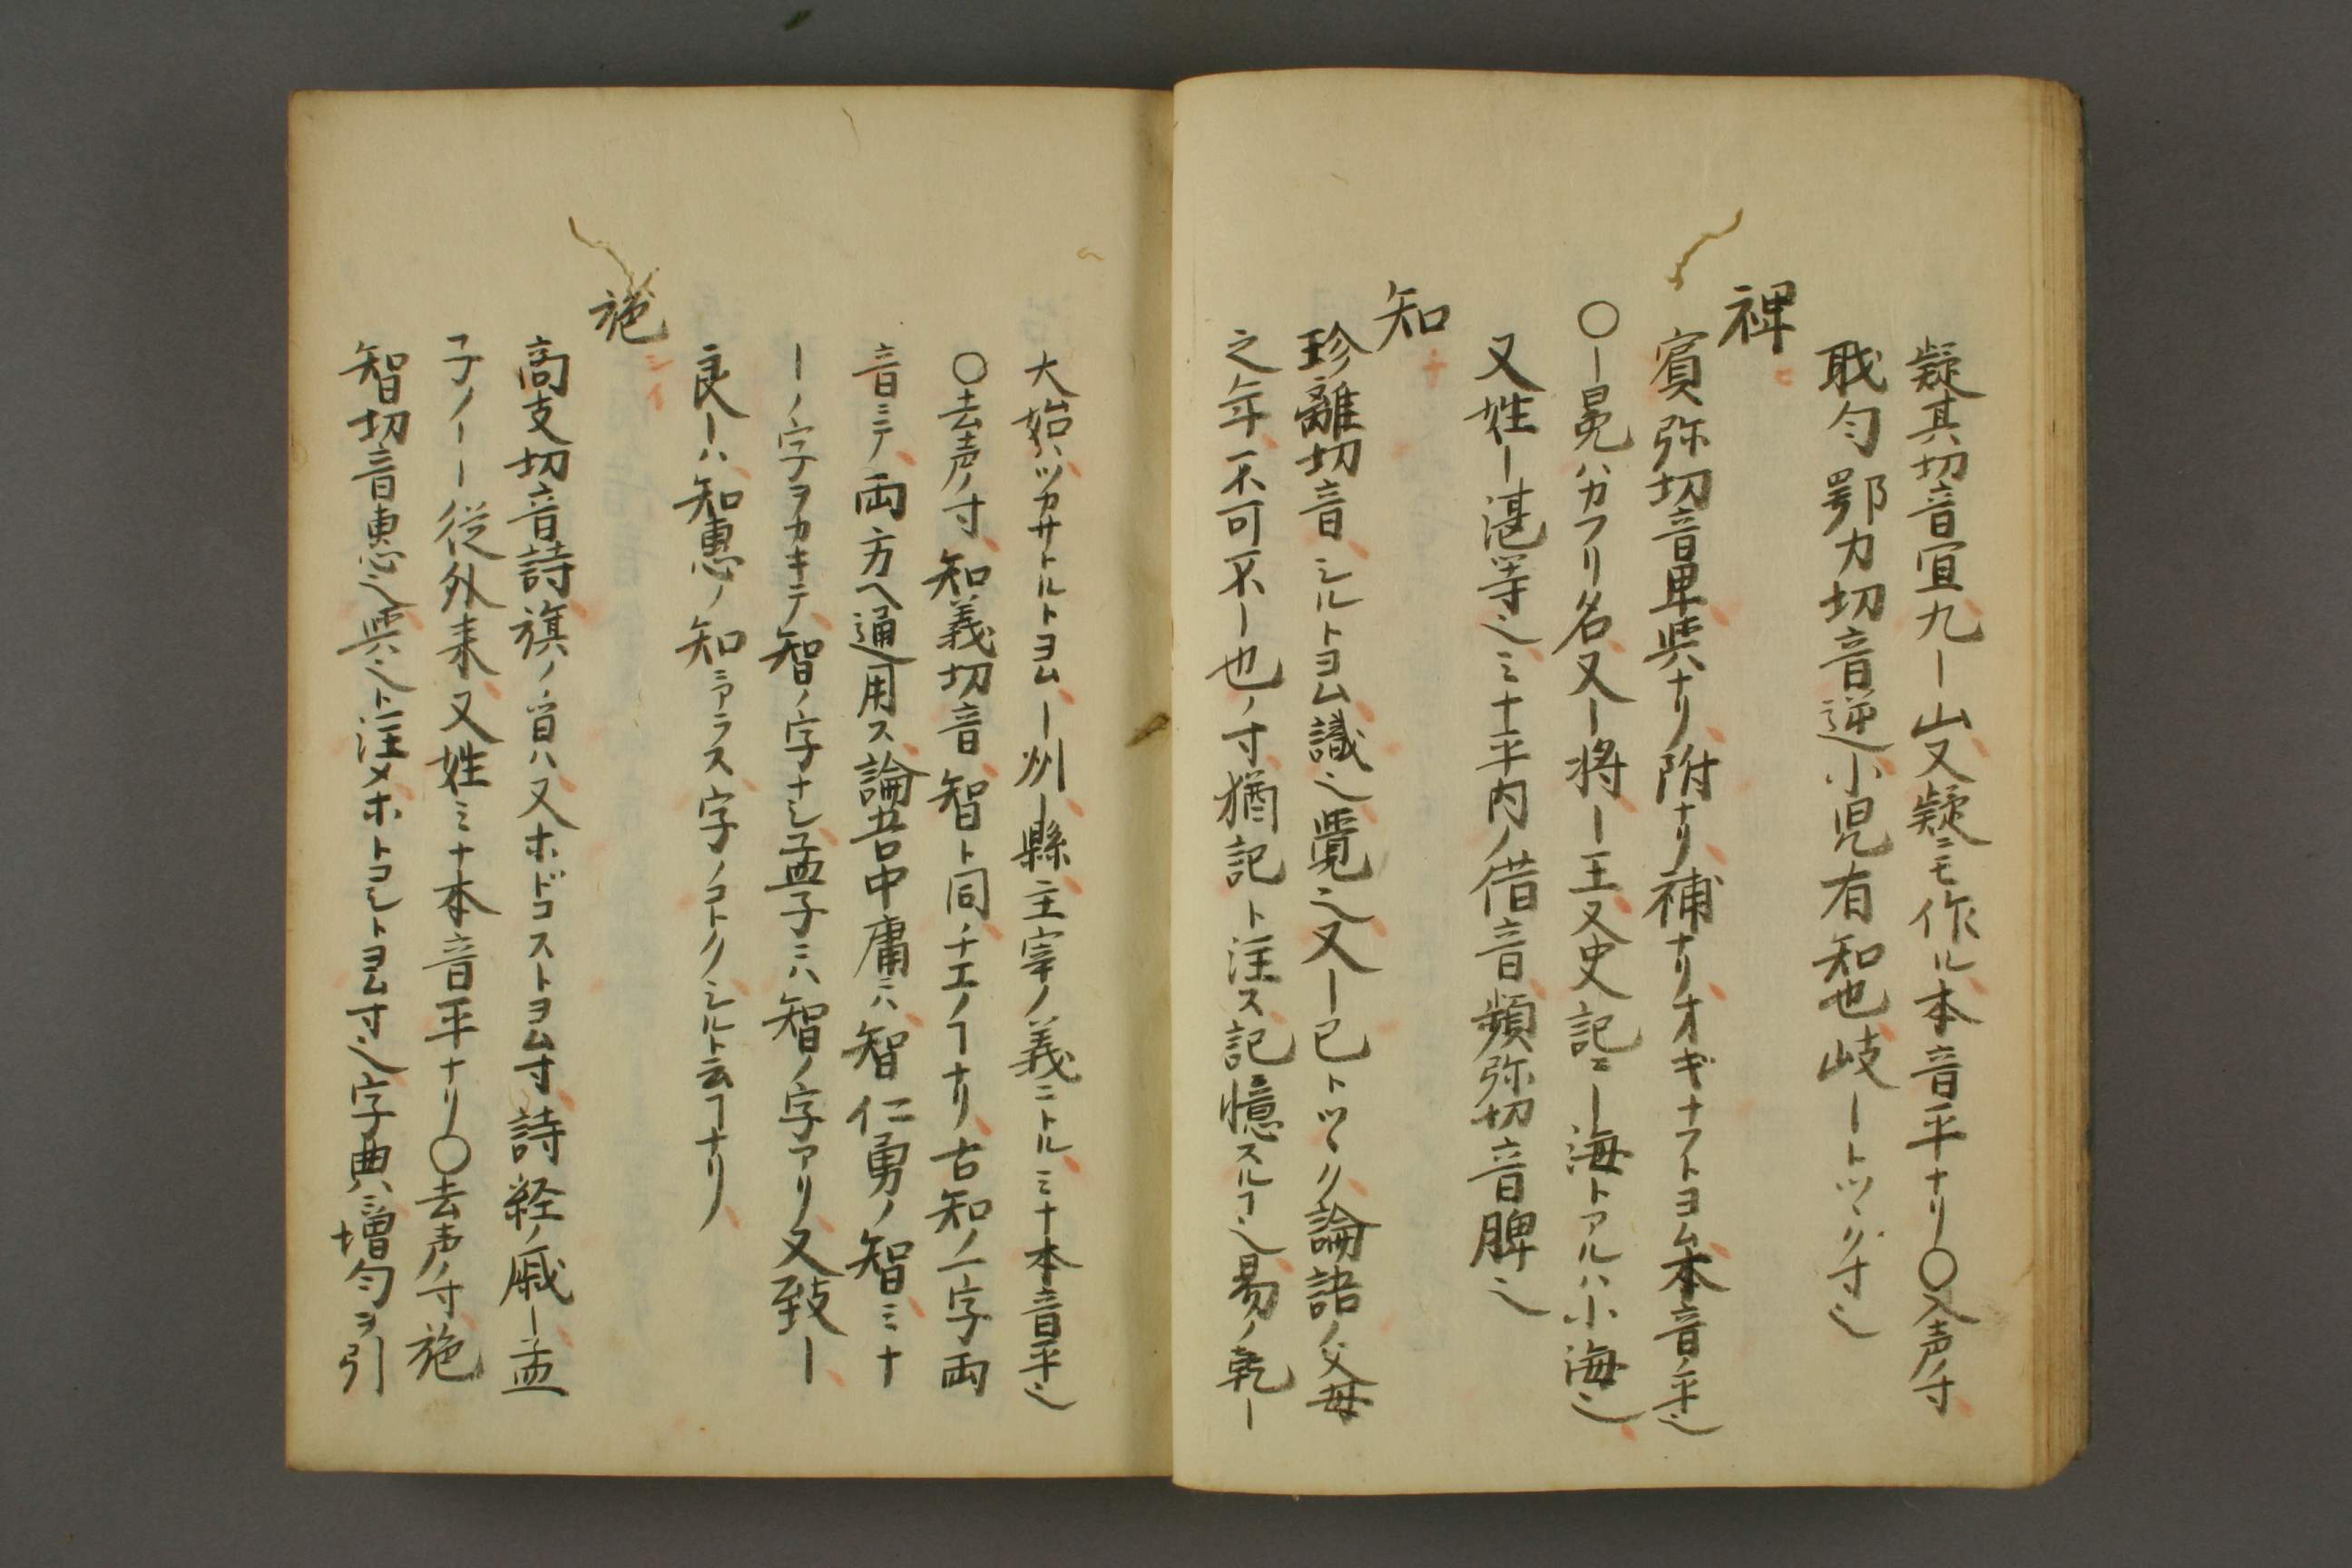 疑其切音宜九ー山又疑ニモ作ル本音平ナリ〇入声ノ寸
職匀鄂力切音逆小児有知也岐ートツヽク寸也
裨
賓弥切音卑与ナリ附ナリ補ナリオギナフトヨム本音ノ平也
〇ー冕ハカフリ名又ー将ー王又史記ニー海トアルハ小海也
又姓ー湛等也ミナ平内ノ借音頻弥切音脾也
知
珍離切音シルトヨム識也覺也又ー己トツヽク論語ノ父母
之年不可不ー也ノ寸猶記ト注ス記憶スルヿ也易ノ乾ー
大始ハツカサトルトヨムー州ー縣主宰ノ義ニトルミナ本音平也
〇去声ノ寸知義切音智ト同チエノヿナリ古知ノ一字両
音ニテ両方ヘ通用ス論吾中庸ニハ智仁勇ノ智ミナ
ーノ字ヲカキテ智ノ字ナシ孟子ニハ智ノ字アリ又致ー
良ーハ知惠ノ知ニアラス字ノコトクシルト云ヿナリ
施
商支切音詩旗ノ皃ハ又ホドコストヨム寸詩経ノ戚ー孟
子ノーー従外来又姓ミナ本音平ナリ〇去声ノ寸施
智切音惠也與也ト注メホトコシトヨム寸也字典ニ増匀ヲ引